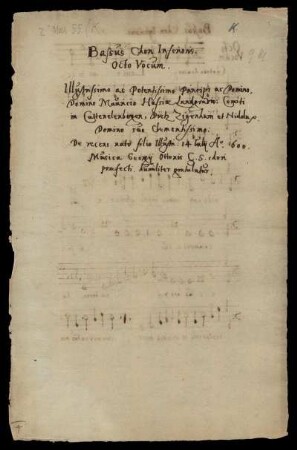 2° Mus. 55/K
K
Bassus Chori Inferioris.
Octo Vocum.
Illustrissimo ac Potentissimo Principi ac Domino,
Domino Mauritio Hassiæ Landgravio: Comiti
in Cattenelenbogen, Dietz, Zigenhain et Nidda,
Domino suo Clementissimo.
De recens nato filio Illustri 14 Julij A°. 1600.
Musica Georgy Ottonis C. S. chori
præfecti humiliter gratulatur.